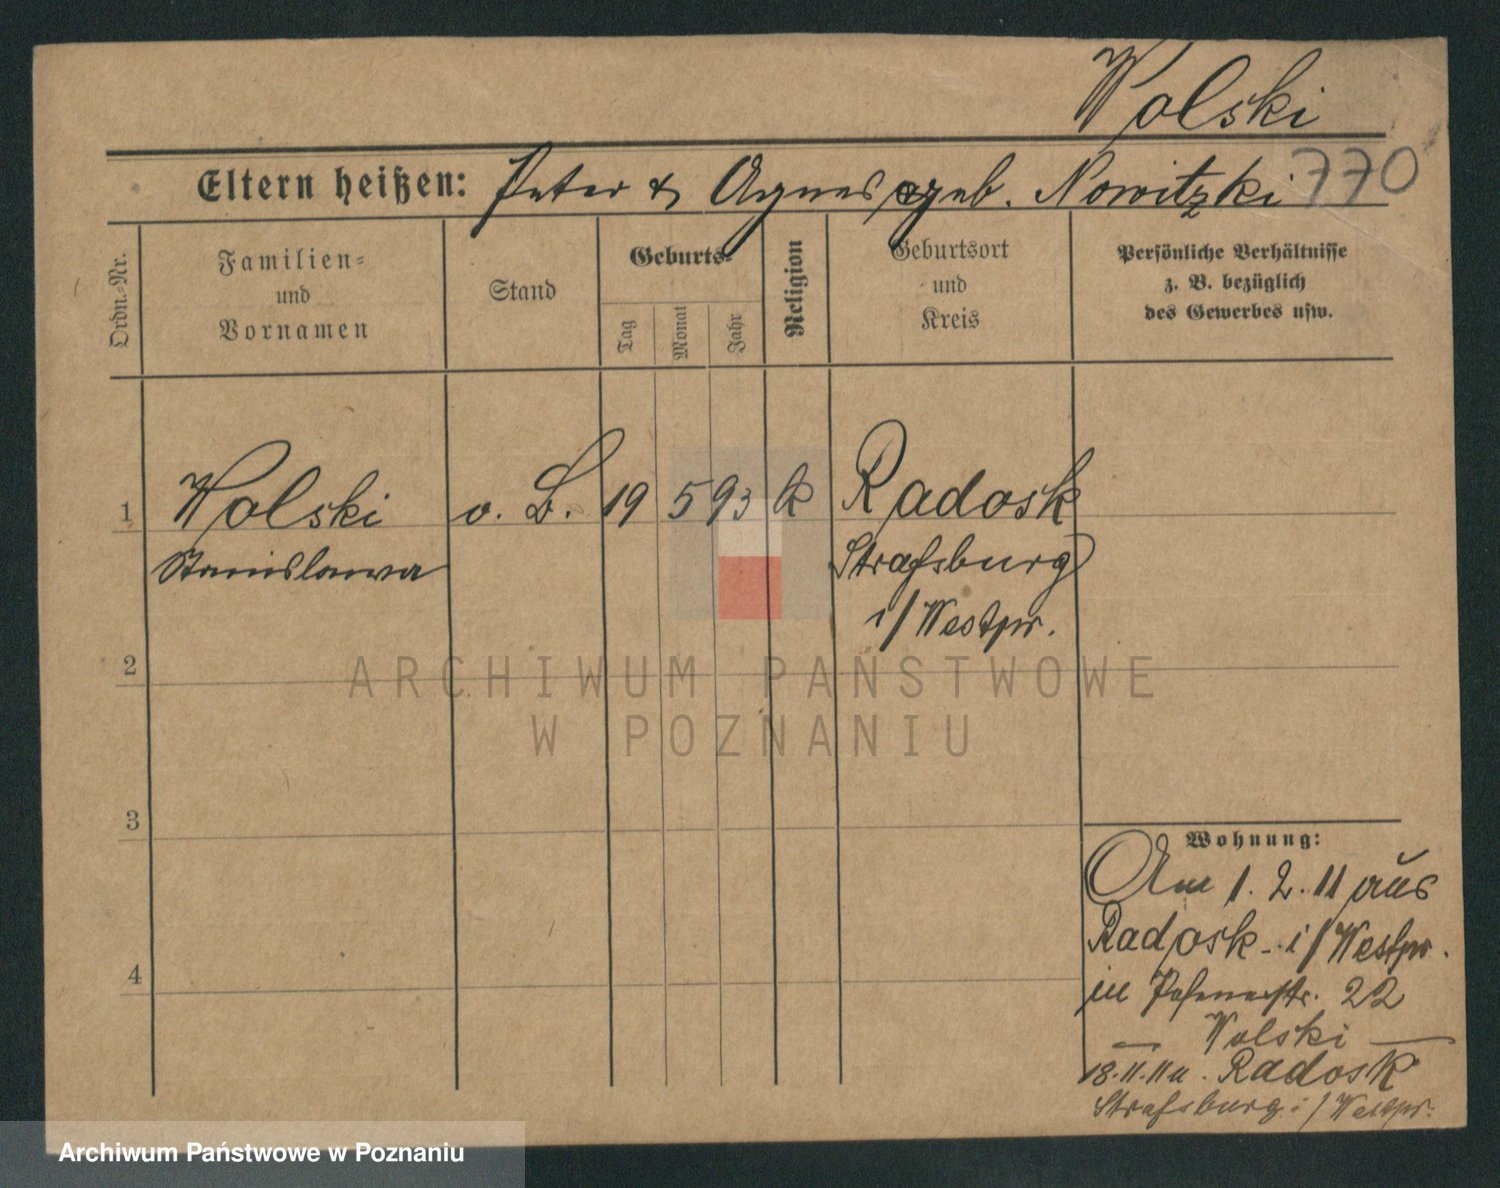 Wolski
Eltern heißen: Peter & Agnes geb. Nowitzki 770
Ordn.-Nr.
Familien-
und
Vornamen
Stand
Geburts-
Tag
Monat
Jahr
Religion
Geburtsort
und
Kreis
Persönliche Verhältnisse
z. B. bezüglich
des Gewerbes usw.
1 Wolski o. B. 19 5 93 k Radosk
Stanislawa Straßburg
i/Westpr.
2
ARCHIWUM PAŃSTWOWE
W POZNANIU
3
Wohnung:
Am 1. 2. 11 aus
Radosk i/Westpr.
4
in Posenerstr. 22
— Wolski —
18.11.11 n. Radosk
Straßburg i/Westpr.
Archiwum Państwowe w Poznaniu